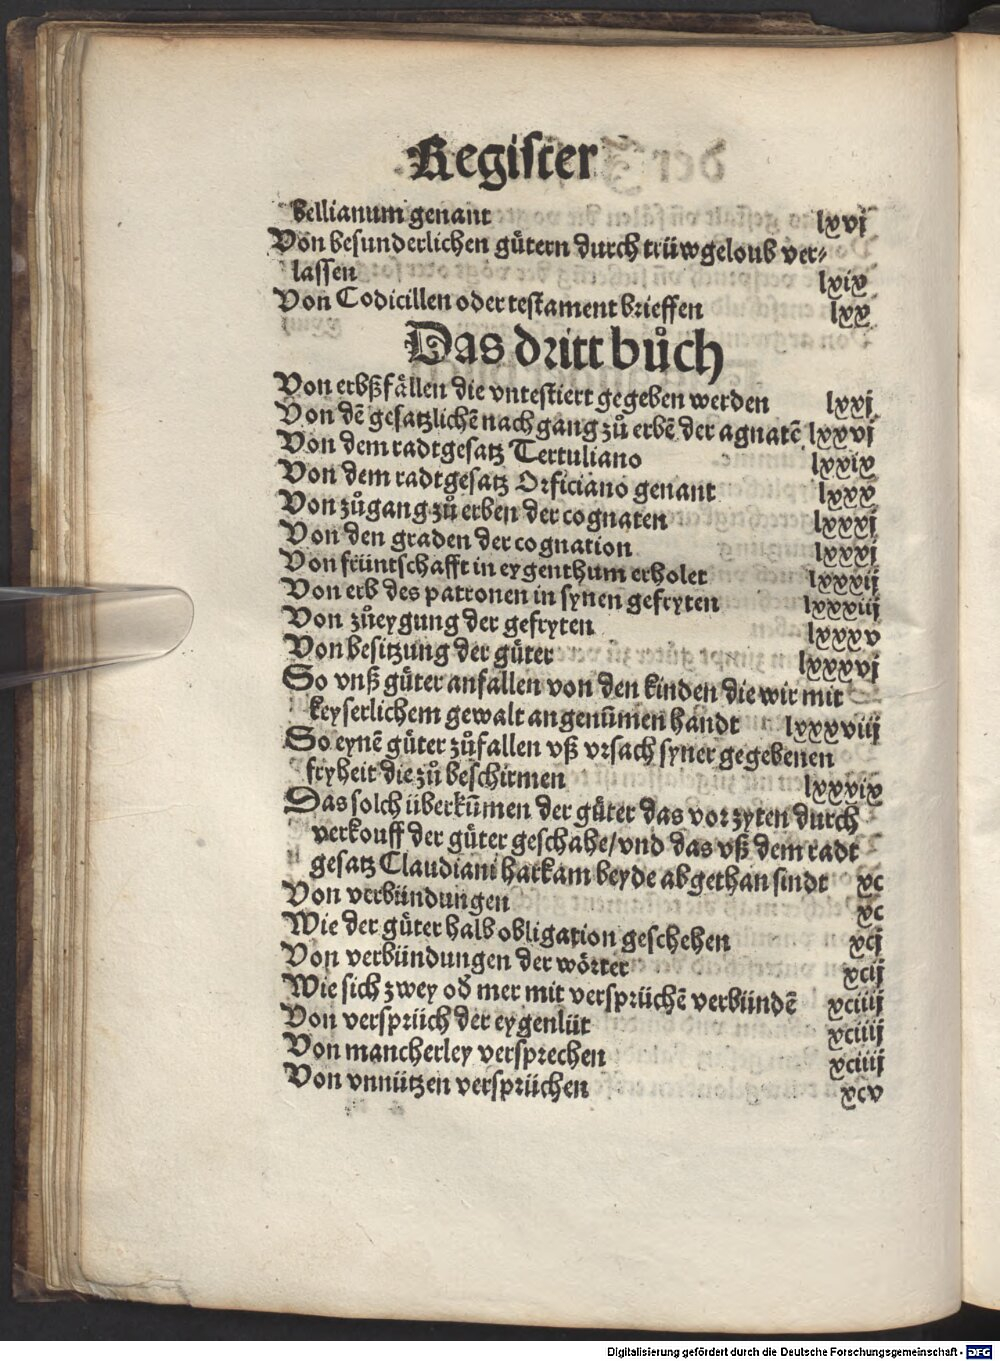 Register
bellianum genant lxvj
Von besunderlichen gütern durch trüwgeloub ver-
lassen lxix
Von Codicillen oder testament brieffen lxx
Das dritt bůch
Von erbßfällen die vntestiert gegeben werden lxxj
Von dē gesatzlichē nachgang zů erbē der agnatē lxxvj
Von dem radtgesatz Tertuliano lxxix
Von dem radtgesatz Orficiano genant lxxx
Von zůgang zů erben der cognaten lxxxj
Von den graden der cognation lxxxj
Von früntschafft in eygenthum erholet lxxxij
Von erb des patronen in synen gefryten lxxxiij
Von zůeygung der gefryten lxxxv
Von besitzung der güter lxxxvj
So vnß güter anfallen von den kinden die wir mit
keyserlichem gewalt angenūmen handt lxxxviij
So eynē güter zůfallen vß vrsach syner gegebenen
fryheit die zů beschirmen lxxxix
Das solch überkūmen der güter das vorzyten durch
verkouff der güter geschahe/vnd das vß dem radt
gesatz Claudiani harkam beyde abgethan sindt xc
Von verbündungen xc
Wie der güter halb obligation geschehen xcj
Von verbündungen der wörter xcij
Wie sich zwey od mer mit versprüchē verbündē xciiij
Von versprüch der eygenlüt xciiij
Von mancherley versprechen xciiij
Von vnnützen versprüchen xcv
Digitalisierung gefördert durch die Deutsche Forschungsgemeinschaft - DFG